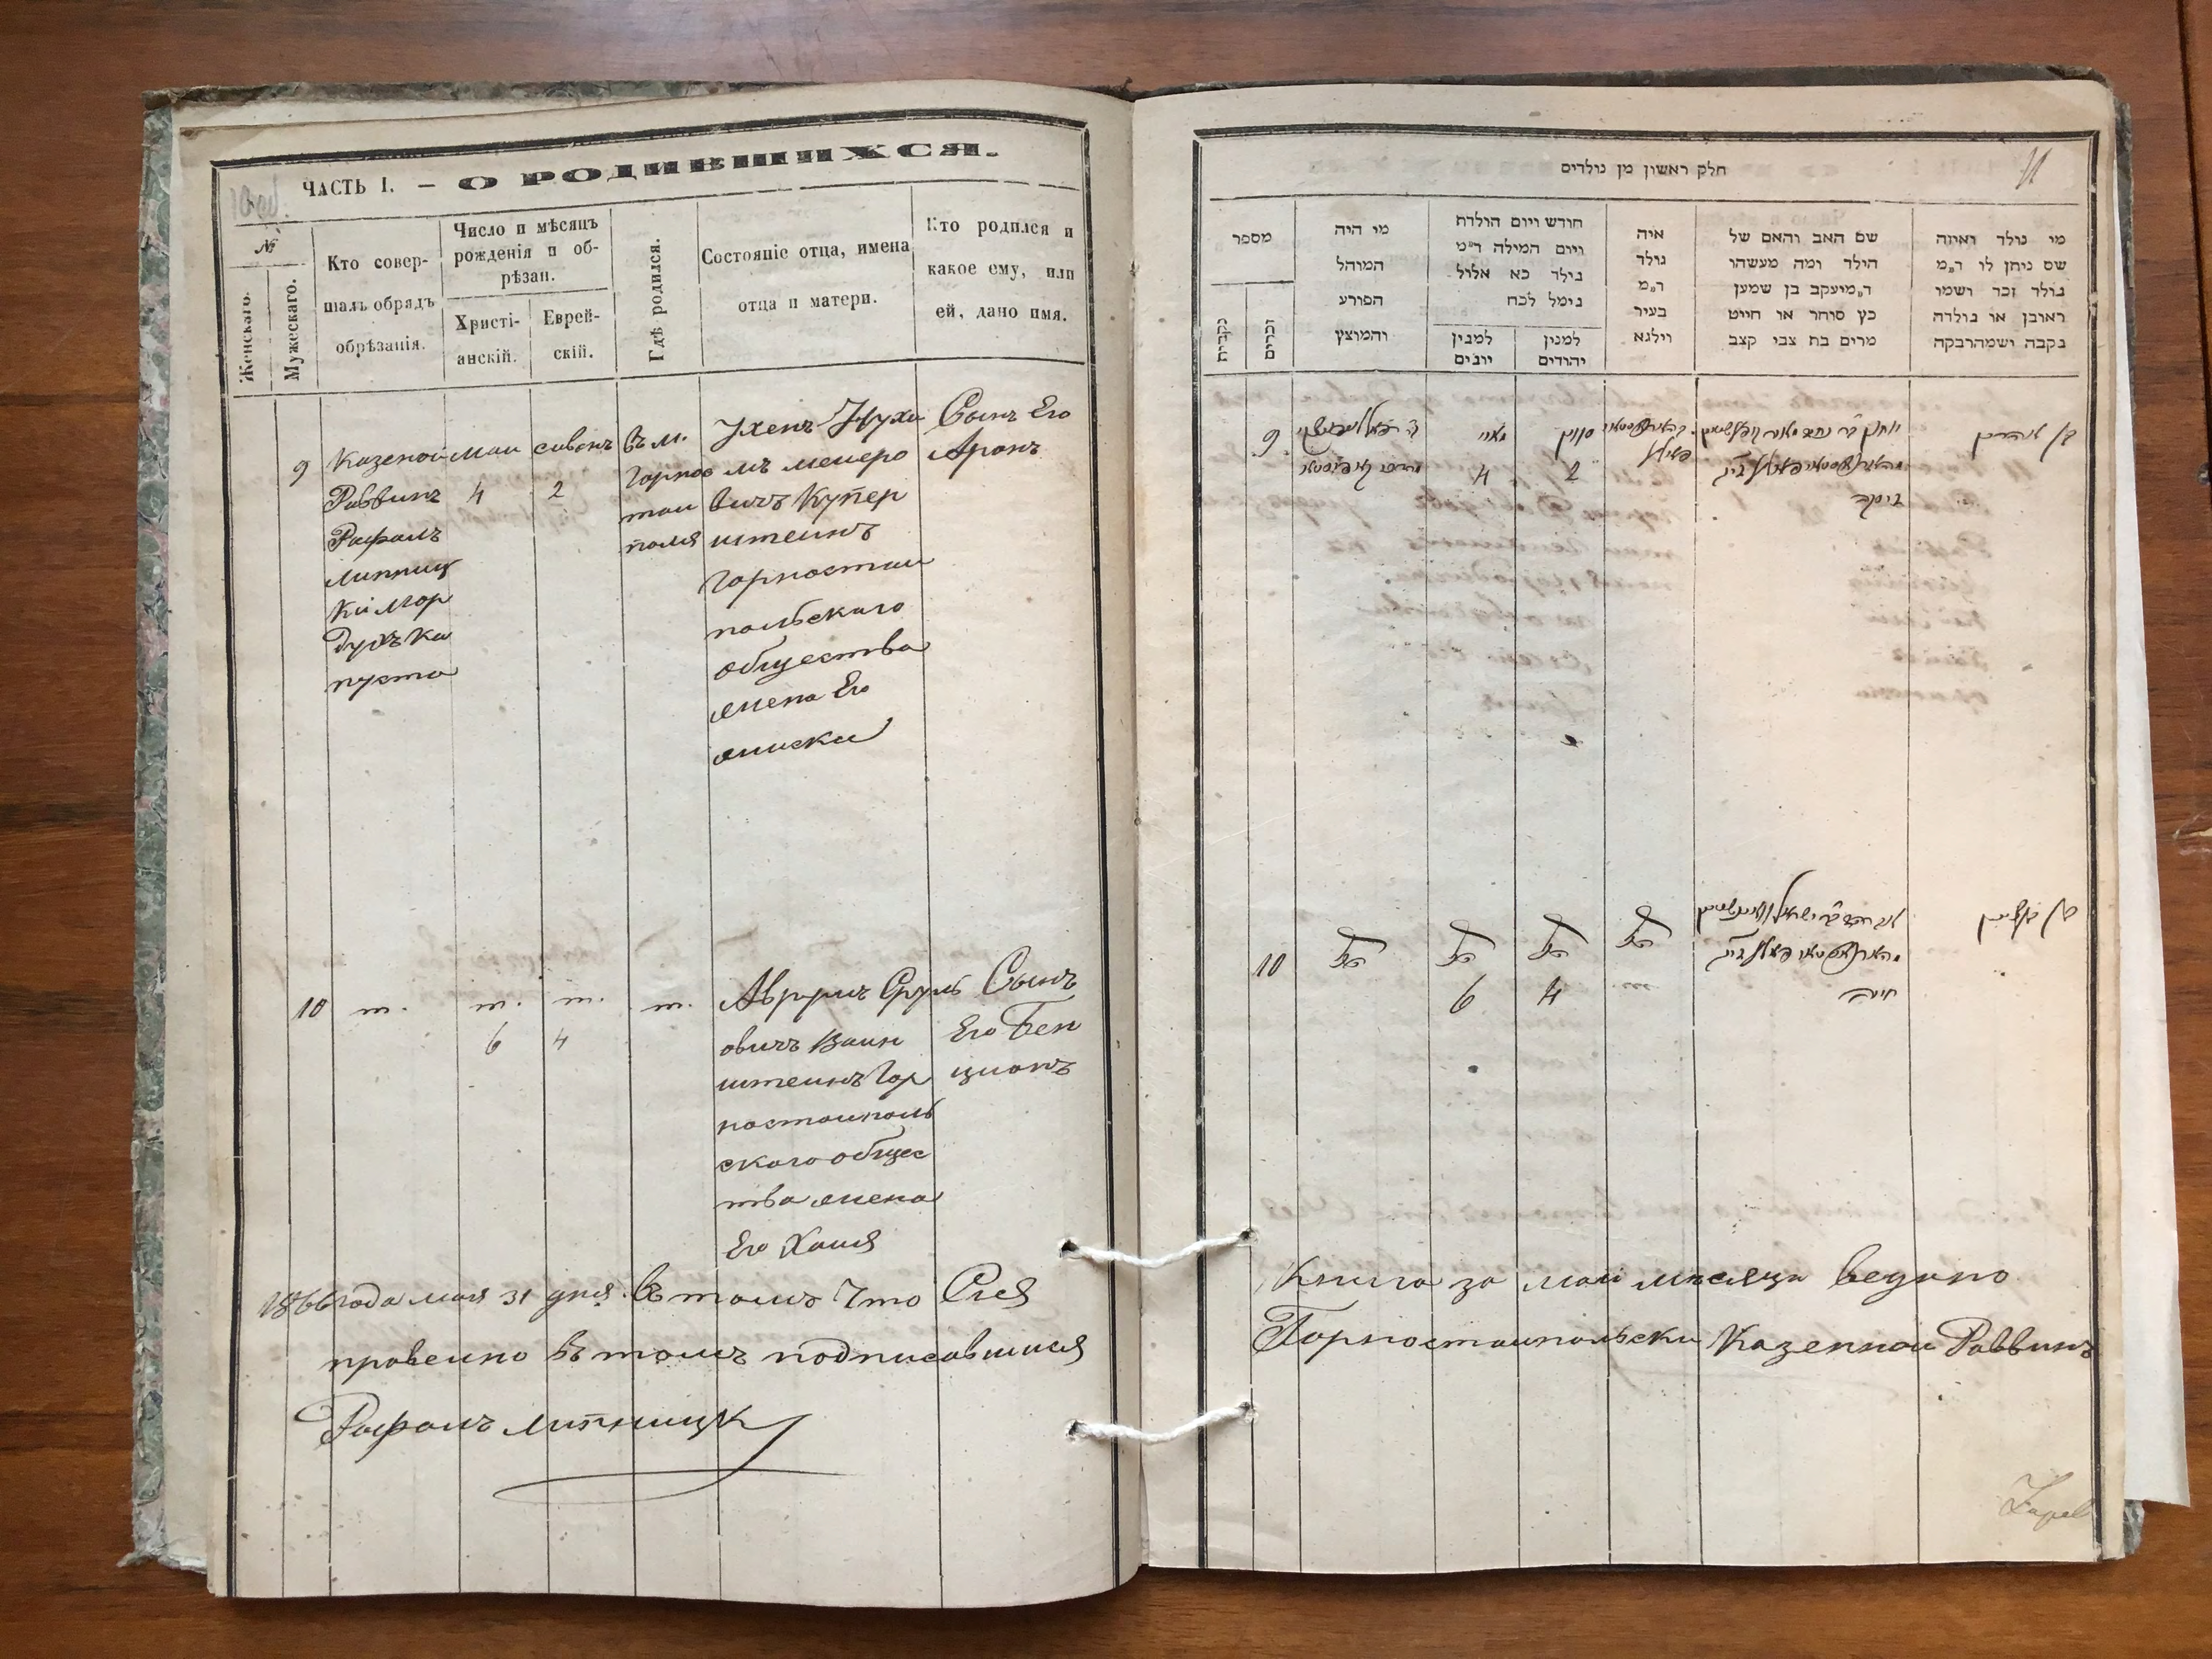 ЧАСТЬ I. — О РОДИВШИХСЯ.
№
Женскаго.
Мужескаго.
Кто совер-
шалъ обрядъ
обрѣзанія.
Число и мѣсяцъ
рожденія и об-
рѣзан.
Христі-
анскій.
Еврей-
скій.
Гдѣ родился.
Состояніе отца, имена
отца и матери.
Кто родился и
какое ему, или
ей, дано имя.
9
Казеной
Раввинъ
Рафалъ
Липниц
Кий Мор
духъ Ка
пуста
маи
4
сивонъ
2
въ м.
Горнос
таи
поля
Ухенъ Нухи
мъ меиеро
вичъ Купер
штеинъ
Горностаи
польскаго
общества
жена Его
Сынъ Его
Аронъ
10
т.
т.
6
т.
4
т.
Аврумъ Сруль
овичъ Ваин
штеинъ Гор
ностаиполь
скаго общес
тва жена
Его Хаия
Сынъ
Его Бен
ционъ
1866 года мая 31 дня въ томъ Что Сия
въ томъ подписавшися
Рафалъ Липницк
חלק ראשון מן נולדים
11
מספר
נקבות
זכרים
מי היה
המוהל
הפורע
והמוצץ
חודש ויום הולדת
ויום המילה ד״מ
נילד כא אלול
נימל לכח
למנין
יונים
למנין
יהודים
איה
נולד
ד״מ
בעיר
וילנא
שם האב והאם של
הילד ומה מעשהו
ד״מ יעקב בן שמען
כץ סוחר או חייט
מרים בת צבי קצב
מי נולד ואיזה
שם ניתן לו ד״מ
נולד זכר ושמו
ראובן או נולדה
נקבה ושמה רבקה
9
מאיי
4
סיון
2
בן אהרן
10
6
4
חיה
בן בן ציון
Книга за маи месяцъ ведено
Горностаипольски Казеннои Раввинъ